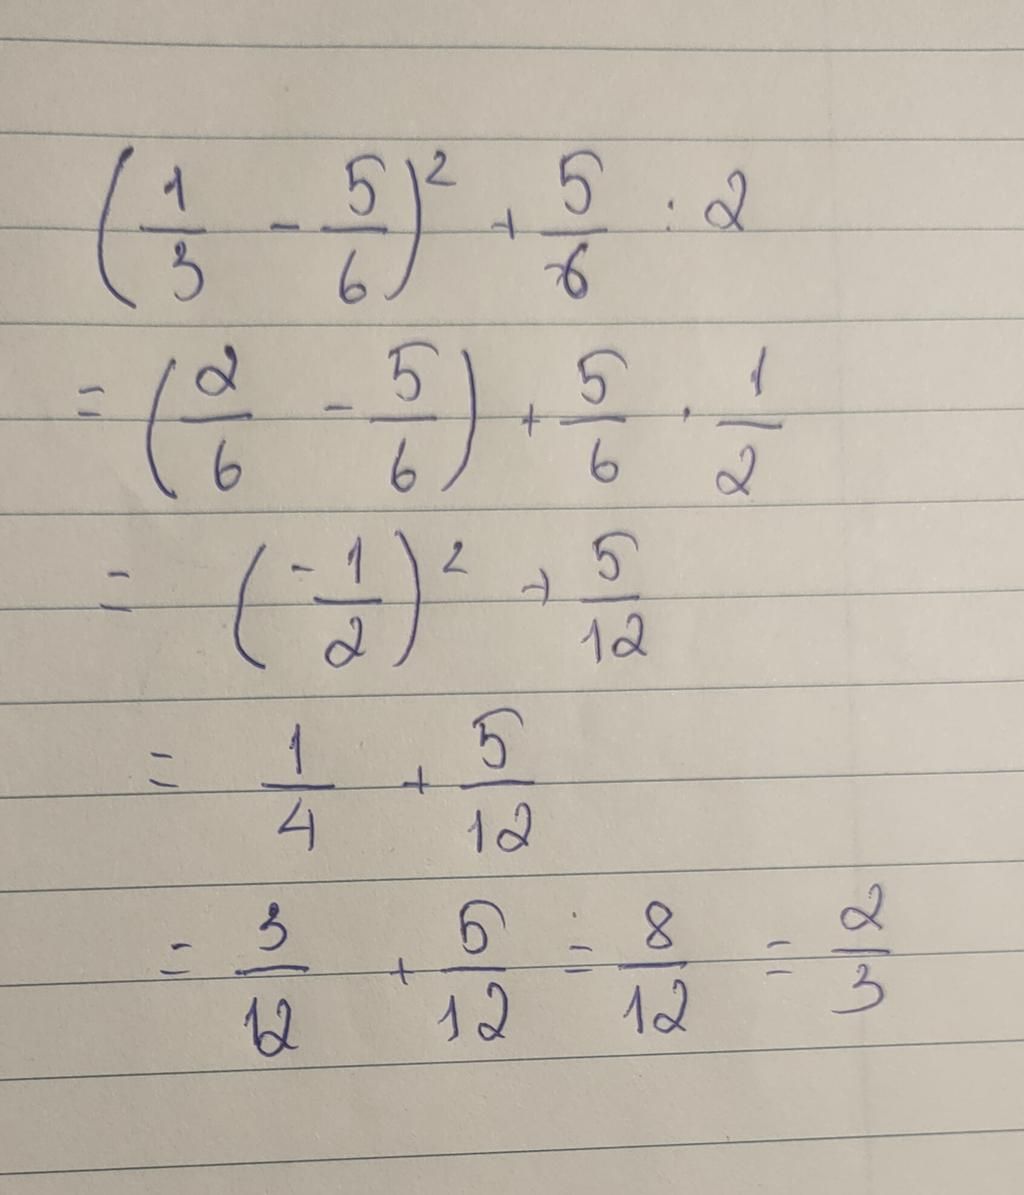 (1/3 - 5/6)² + 5/6 : 2
= (2/6 - 5/6) + 5/6 . 1/2
= (-1/2)² + 5/12
= 1/4 + 5/12
= 3/12 + 5/12 = 8/12 = 2/3